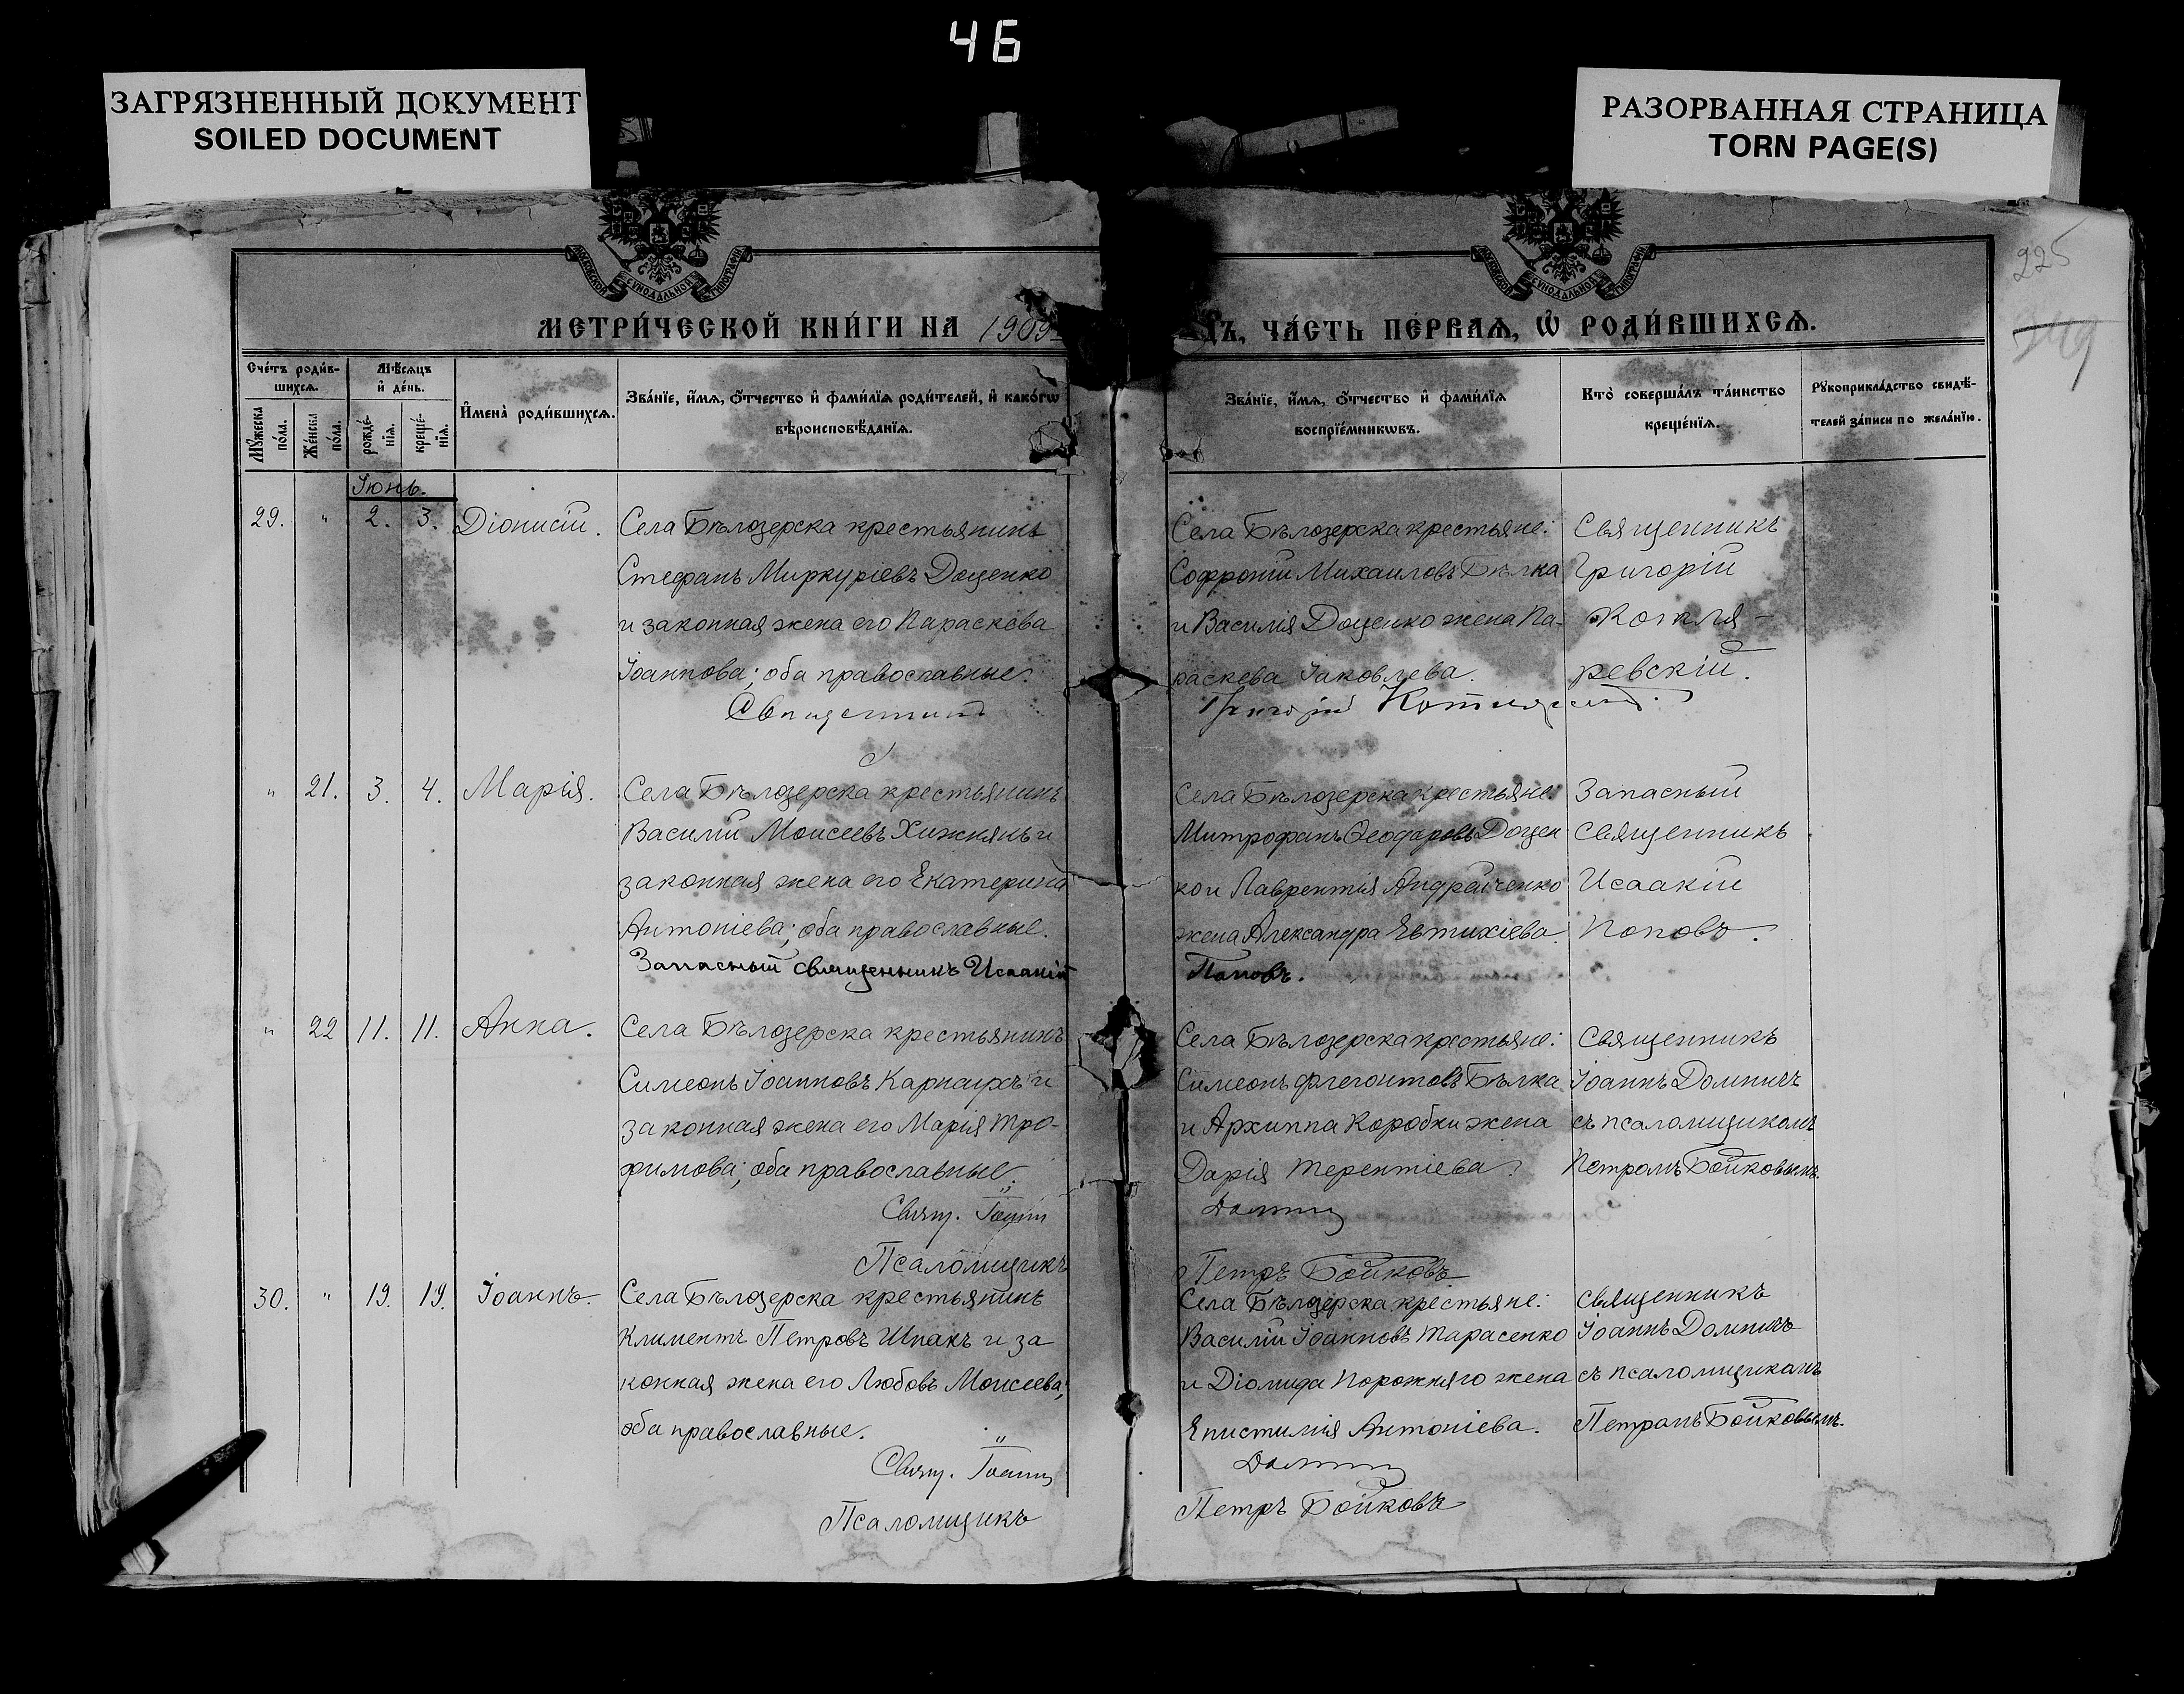 46
ЗАГРЯЗНЕННЫЙ ДОКУМЕНТ
SOILED DOCUMENT
РАЗОРВАННАЯ СТРАНИЦА
TORN PAGE(S)
225
МОСКОВСКОЙ СѴНОДАЛЬНОЙ ТИПОГРАФІИ
МОСКОВСКОЙ СѴНОДАЛЬНОЙ ТИПОГРАФІИ
МЕТРИ́ЧЕСКОЙ КНИ́ГИ НА 1909
ДЪ, ЧА́СТЬ ПЕ́РВАѦ, Ѡ҆ РОДИ́ВШИХСѦ.
Сче́тъ роди́в-
шихсѧ.
Мꙋжеска по́ла.
Же́нска по́ла.
Мѣ́сѧцъ
и҆ де́нь.
рожде́-
нїѧ.
креще́-
нїѧ.
И҆мена̀ роди́вшихсѧ.
Зва́нїе, и҆́мѧ, о҆́тчество и҆ фами́лїѧ роди́телей, и҆ како́гѡ
вѣроисповѣ́данїѧ.
Зва́нїе, и҆́мѧ, о҆́тчество и҆ фами́лїѧ
воспрїе́мникѡвъ.
Кто̀ соверша́лъ та́инство
креще́нїѧ.
Рꙋкоприкла́дство свидѣ́-
телей за́писи по жела́нїю.
Іюнь.
29. " 2. 3. Діонисій.
Села Бѣлозерска крестьянинъ
Стефанъ Миркуріевъ Доценко
и законная жена его Параскева
Іоаннова; оба православные.
Священникъ
Села Бѣлозерска крестьяне:
Софроній Михаиловъ Бѣлка
и Василія Доценко жена Па-
раскева Іаковлева.
Григорій
Священникъ
Григорій
Котля-
ревскій.
" 21. 3. 4. Марія.
Села Бѣлозерска крестьянинъ
Василій Моисеевъ Хижнякъ и
законная жена его Екатерина
Антоніева; оба православные.
Запасный священникъ Исаакій
Села Бѣлозерска крестьяне:
Митрофанъ Ѳеодоровъ Доцен
ко и Лаврентія Андрейченко
жена Александра Евтихіева.
Поповъ.
Запасный
священникъ
Исаакій
Поповъ.
" 22 11. 11. Анна.
Села Бѣлозерска крестьянинъ
Симеонъ Іоанновъ Карнаухъ и
законная жена его Марія Тро-
фимова; оба православные.
Свящ. Іоаннъ
Псаломщикъ
Села Бѣлозерска крестьяне:
Симеонъ Флегонтовъ Бѣлка
и Архиппа Коробки жена
Дарія Терентіева.
Петръ Бойковъ
Священникъ
Іоаннъ Домничъ
съ псаломщикомъ
Петромъ Бойковымъ.
30. " 19. 19. Іоаннъ.
Села Бѣлозерска крестьянинъ
Климентъ Петровъ Шпакъ и за
конная жена его Любовь Моисеева;
оба православные.
Свящ. Іоаннъ
Псаломщикъ
Села Бѣлозерска крестьяне:
Василій Іоанновъ Тарасенко
и Діомида Порожняго жена
Епистимія Антоніева.
Петръ Бойковъ
Священникъ
Іоаннъ Домничъ
съ псаломщикомъ
Петромъ Бойковымъ.